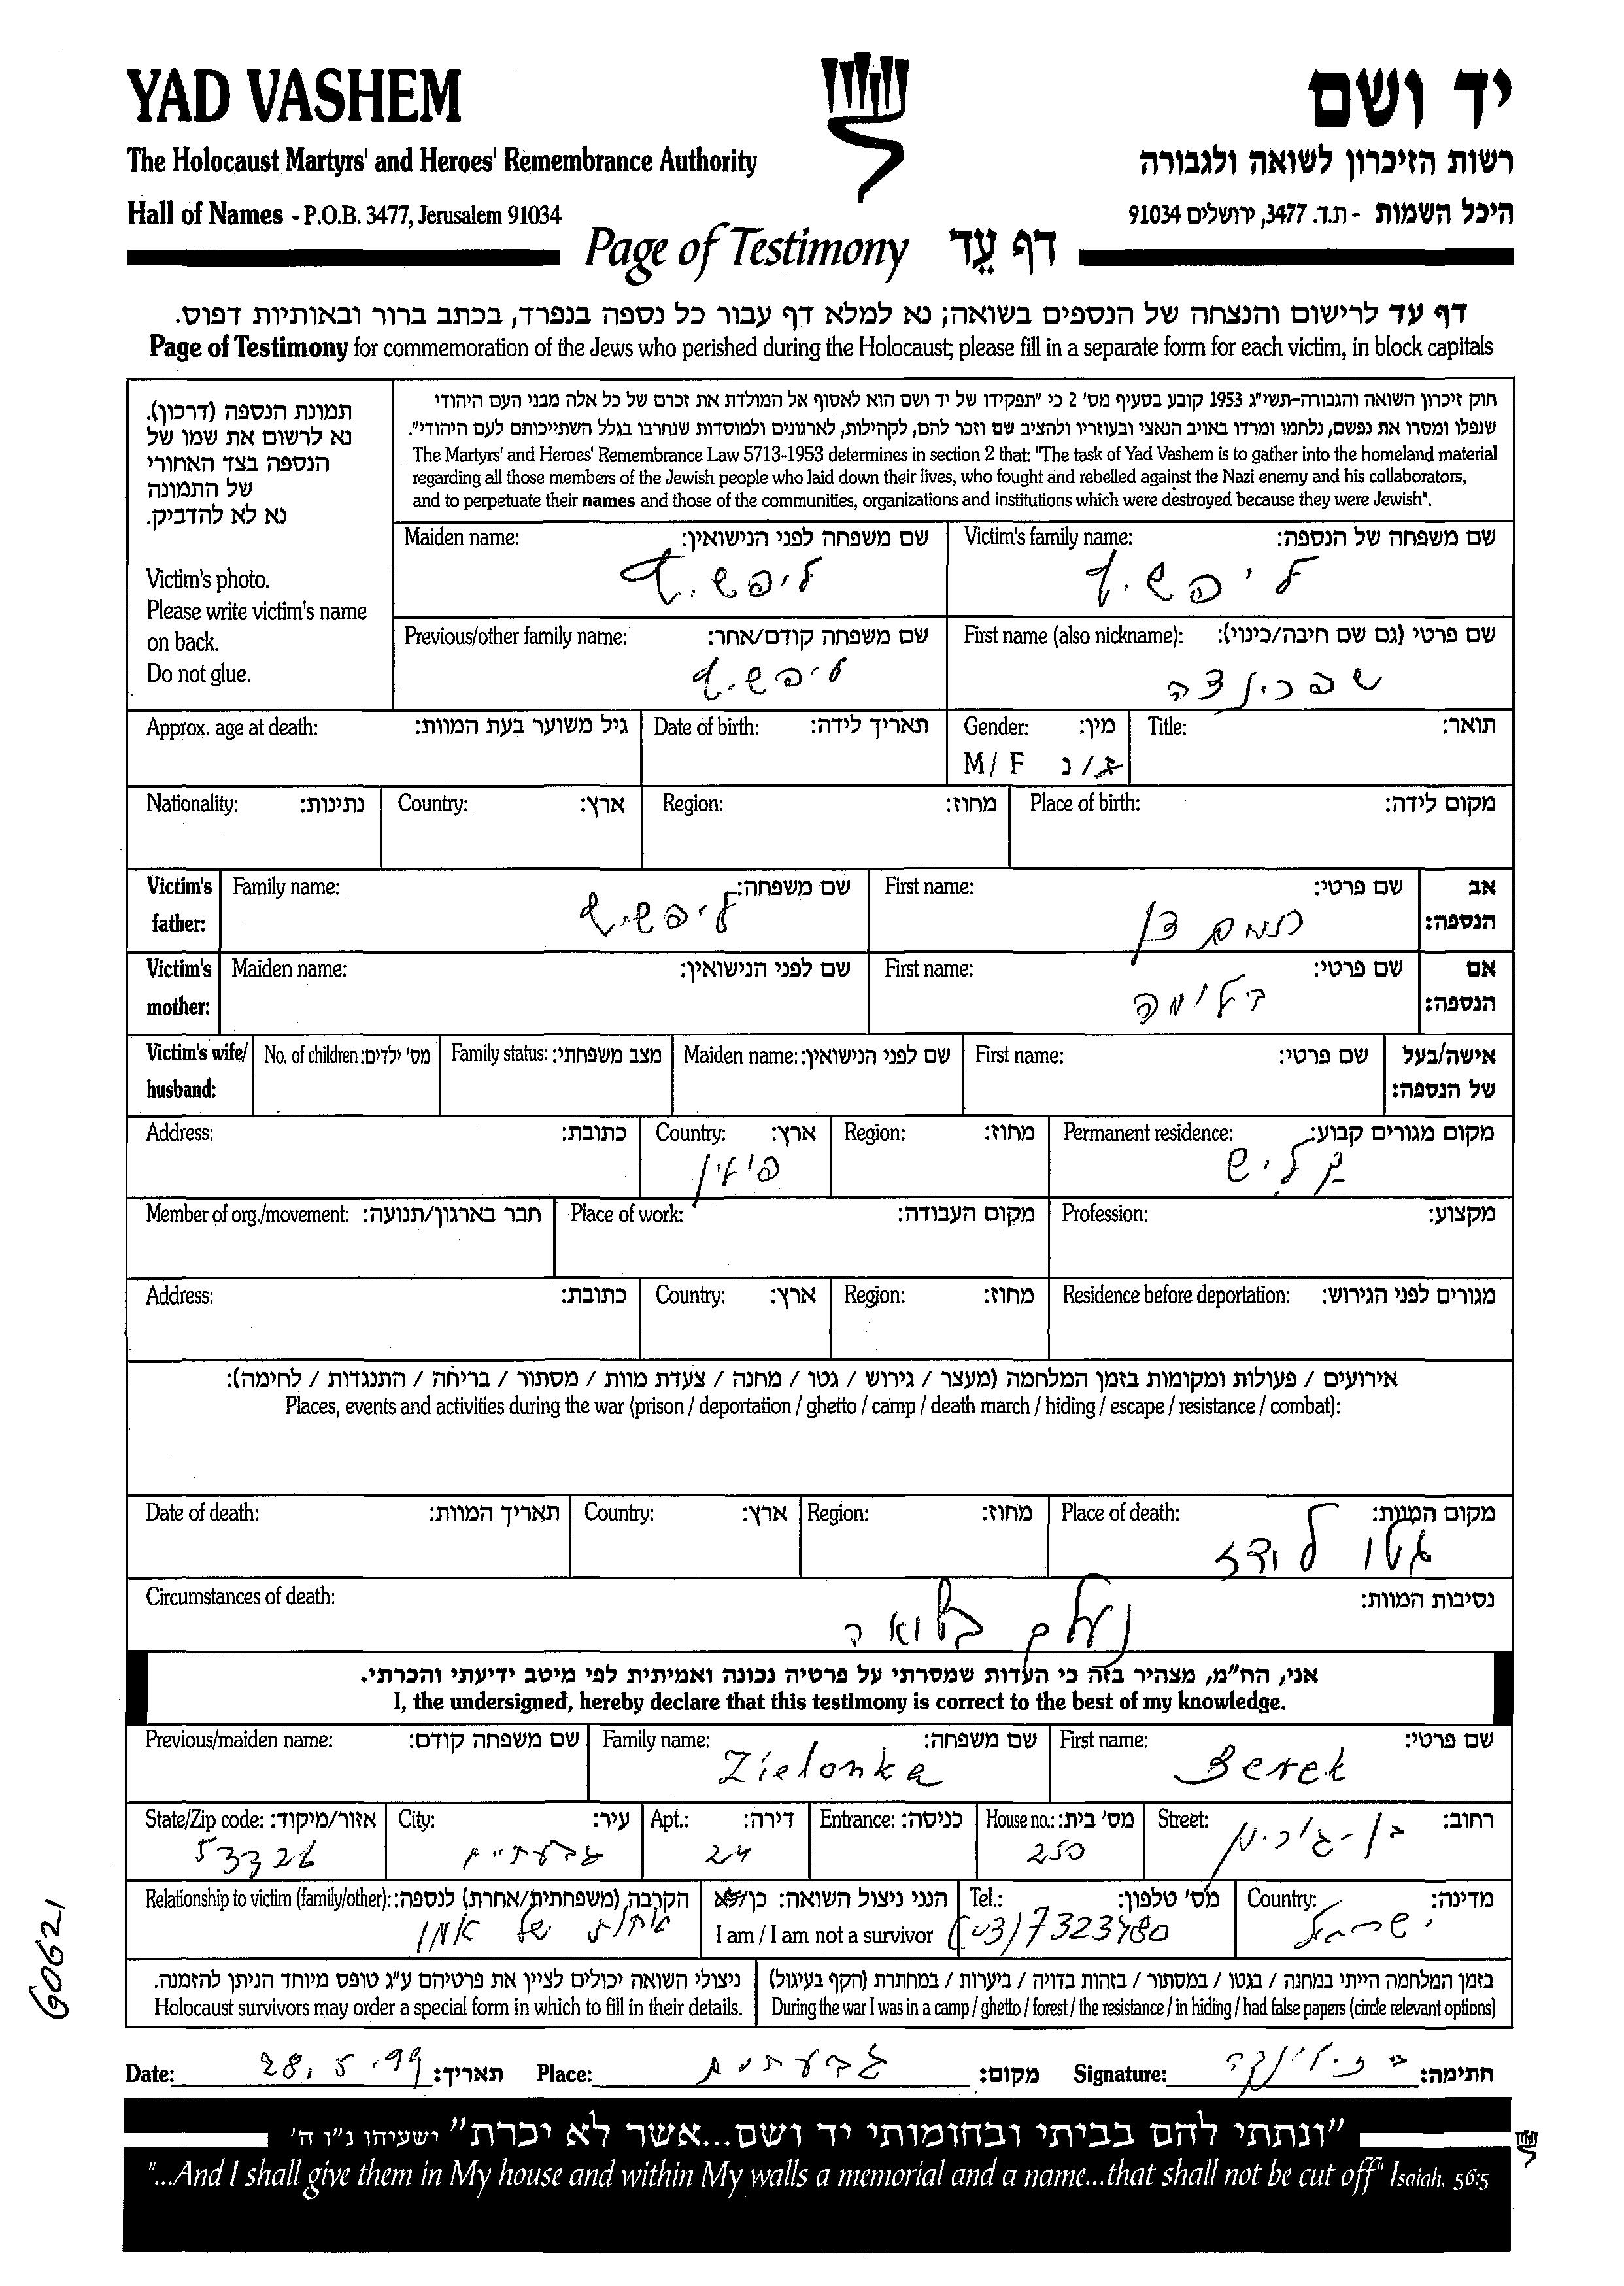 YAD VASHEM
יד ושם
The Holocaust Martyrs' and Heroes' Remembrance Authority
רשות הזיכרון לשואה ולגבורה
Hall of Names - P.O.B. 3477, Jerusalem 91034
היכל השמות - ת.ד. 3477, ירושלים 91034
Page of Testimony דף עֵד
דף עד לרישום והנצחה של הנספים בשואה; נא למלא דף עבור כל נספה בנפרד, בכתב ברור ובאותיות דפוס.
Page of Testimony for commemoration of the Jews who perished during the Holocaust; please fill in a separate form for each victim, in block capitals
תמונת הנספה (דרכון).
נא לרשום את שמו של
הנספה בצד האחורי
של התמונה
נא לא להדביק.
Victim's photo.
Please write victim's name
on back.
Do not glue.
חוק זיכרון השואה והגבורה-תשי"ג 1953 קובע בסעיף מס' 2 כי "תפקידו של יד ושם הוא לאסוף אל המולדת את זכרם של כל אלה מבני העם היהודי
שנפלו ומסרו את נפשם, נלחמו ומרדו באויב הנאצי ובעוזריו ולהציב שם וזכר להם, לקהילות, לארגונים ולמוסדות שנחרבו בגלל השתייכותם לעם היהודי".
The Martyrs' and Heroes' Remembrance Law 5713-1953 determines in section 2 that: "The task of Yad Vashem is to gather into the homeland material
regarding all those members of the Jewish people who laid down their lives, who fought and rebelled against the Nazi enemy and his collaborators,
and to perpetuate their names and those of the communities, organizations and institutions which were destroyed because they were Jewish".
Victim's family name: שם משפחה של הנספה:
ליפשיץ
Maiden name: שם משפחה לפני הנישואין:
ליפשיץ
First name (also nickname): שם פרטי (גם שם חיבה/כינוי):
שפרינצה
Previous/other family name: שם משפחה קודם/אחר:
ליפשיץ
Title: תואר:
Gender: מין:
M / F ז/נ
Date of birth: תאריך לידה:
Approx. age at death: גיל משוער בעת המוות:
Place of birth: מקום לידה:
Region: מחוז:
Country: ארץ:
Nationality: נתינות:
Victim's father: אב הנספה:
First name: שם פרטי:
Family name: שם משפחה:
ליפשיץ
Victim's mother: אם הנספה:
First name: שם פרטי:
Maiden name: שם לפני הנישואין:
Victim's wife/ husband: אישה/בעל של הנספה:
First name: שם פרטי:
Maiden name: שם לפני הנישואין:
Family status: מצב משפחתי:
No. of children: מס' ילדים:
Permanent residence: מקום מגורים קבוע:
קליש
Region: מחוז:
Country: ארץ:
פולין
Address: כתובת:
Profession: מקצוע:
Place of work: מקום העבודה:
Member of org./movement: חבר בארגון/תנועה:
Residence before deportation: מגורים לפני הגירוש:
Region: מחוז:
Country: ארץ:
Address: כתובת:
אירועים / פעולות ומקומות בזמן המלחמה (מעצר / גירוש / גטו / מחנה / צעדת מוות / מסתור / בריחה / התנגדות / לחימה):
Places, events and activities during the war (prison / deportation / ghetto / camp / death march / hiding / escape / resistance / combat):
Place of death: מקום המוות:
גטו לודז
Region: מחוז:
Country: ארץ:
Date of death: תאריך המוות:
Circumstances of death: נסיבות המוות:
נעלם בשואה
אני, הח"מ, מצהיר בזה כי העדות שמסרתי על פרטיה נכונה ואמיתית לפי מיטב ידיעתי והכרתי.
I, the undersigned, hereby declare that this testimony is correct to the best of my knowledge.
First name: שם פרטי:
Berek
Family name: שם משפחה:
Zielonka
Previous/maiden name: שם משפחה קודם:
Street: רחוב:
בן-גוריון
House no.: מס' בית:
250
Entrance: כניסה:
Apt.: דירה:
24
City: עיר:
גבעתיים
State/Zip code: אזור/מיקוד:
53326
Country: מדינה:
ישראל
Tel.: מס' טלפון:
(03) 7323480
הנני ניצול השואה: כן/לא
I am / I am not a survivor
Relationship to victim (family/other): הקרבה (משפחתית/אחרת) לנספה:
אחות של אמן
בזמן המלחמה הייתי במחנה / בגטו / במסתור / בזהות בדויה / ביערות / במחתרת (הקף בעיגול)
During the war I was in a camp / ghetto / forest / the resistance / in hiding / had false papers (circle relevant options)
ניצולי השואה יכולים לציין את פרטיהם ע"ג טופס מיוחד הניתן להזמנה.
Holocaust survivors may order a special form in which to fill in their details.
Date: 28.5.99 תאריך: Place: גבעתיים מקום: Signature: ב זילונקה חתימה:
"ונתתי להם בביתי ובחומותי יד ושם...אשר לא יכרת" ישעיהו נ"ו ה'
"...And I shall give them in My house and within My walls a memorial and a name...that shall not be cut off" Isaiah, 56:5
60621